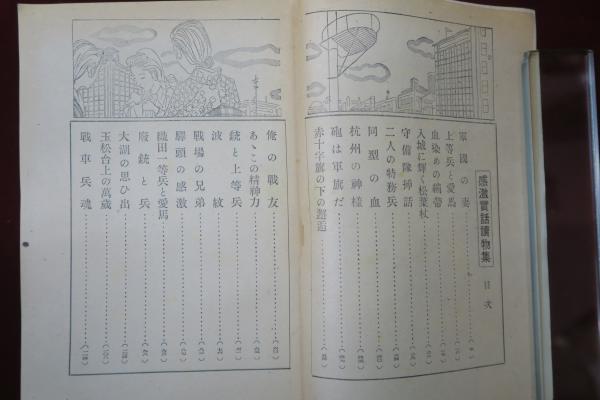 感激實話讀物集
目次
軍國の妻
上等兵と愛馬
血染めの繃帶
入城に輝く松葉杖
守備隊挿話
二人の特務兵
同型の血
杭州の神樣
砲は軍旗だ
赤十字旗の下の邂逅
俺の戰友
あゝこの精神力
銃と上等兵
波紋
戰場の兄弟
驛頭の感激
織田一等兵と愛馬
廢銃と兵
大湖の思ひ出
玉松台上の萬歲
戰車兵魂